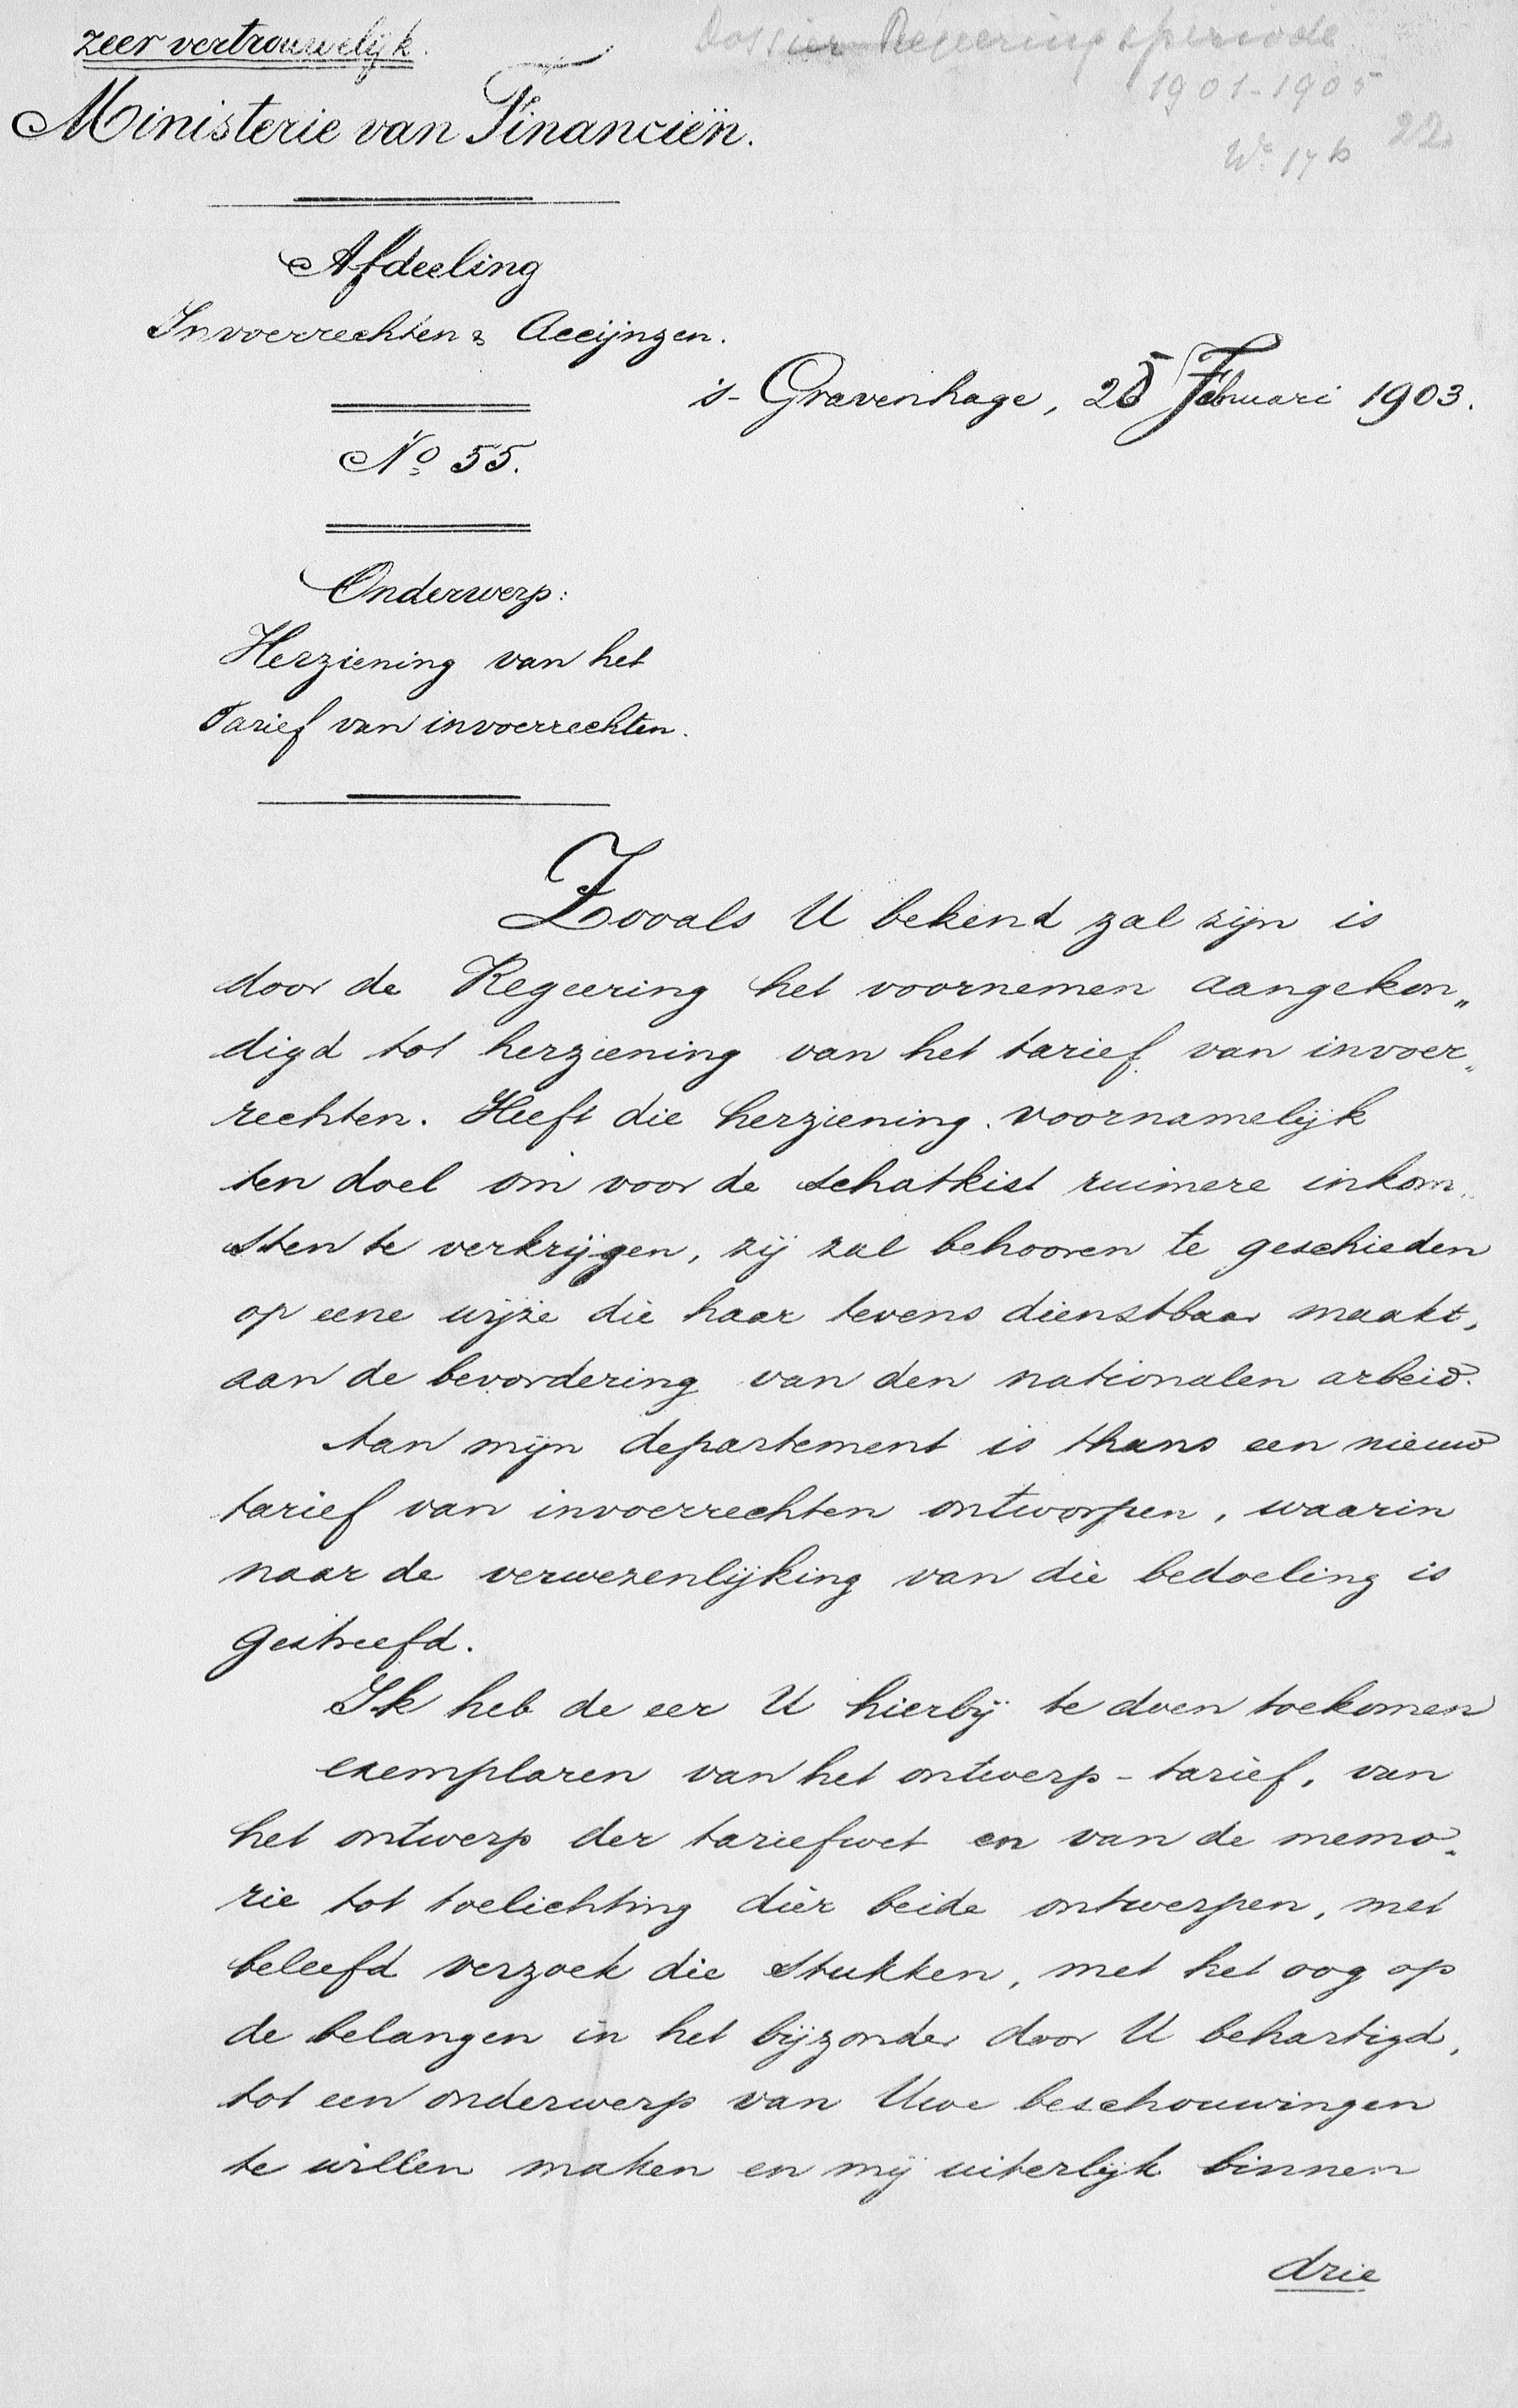 zeer vertrouwelijk.
Dossier Regeeringsperiode
1901-1905
22
Ministerie van Financiën.
Afdeeling
Invoerrechten & Accijnzen.
's-Gravenhage, 25 Februari 1903.
No 55.
Onderwerp:
Herziening van het
Tarief van invoerrechten.
Zooals U bekend zal zijn is
door de Regeering het voornemen aangekon„
digd tot herziening van het tarief van invoer„
rechten. Heeft die herziening voornamelijk
ten doel om voor de schatkist ruimere inkom„
sten te verkrijgen, zij zal behooren te geschieden
op eene wijze die haar tevens dienstbaar maakt,
aan de bevordering van den nationalen arbeid.
Aan mijn departement is thans een nieuw
tarief van invoerrechten ontworpen, waarin
naar de verwezenlijking van die bedoeling is
gestreefd.
Ik heb de eer U hierbij te doen toekomen
exemplaren van het ontwerp-tarief, van
het ontwerp der tariefwet en van de memo„
rie tot toelichting dier beide ontwerpen, met
beleefd verzoek die stukken, met het oog op
de belangen in het bijzonder door U behartigd,
tot een onderwerp van Uwe beschouwingen
te willen maken en mij uiterlijk binnen
drie